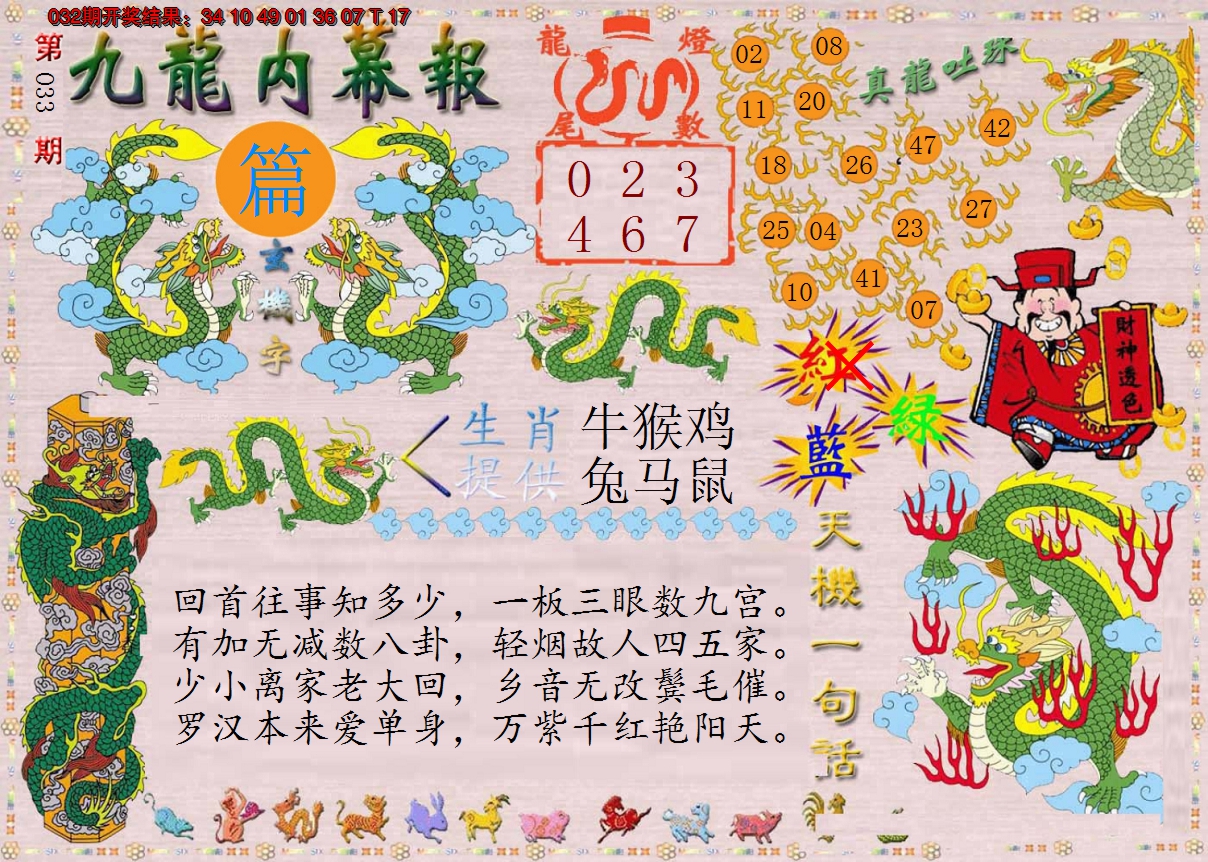 032期开奖结果：34 10 49 01 36 07 T 17
第 033 期
九龍内幕報
篇
玄機字
龍燈尾數
0 2 3
4 6 7
真龍吐珠
02 08
11 20
18 26 47 42
25 04 23 27
10 41 07
財神透色
紅
緑
藍
生肖提供
牛猴鸡
兔马鼠
天機一句話
回首往事知多少，一板三眼数九宫。
有加无减数八卦，轻烟故人四五家。
少小离家老大回，乡音无改鬓毛催。
罗汉本来爱单身，万紫千红艳阳天。